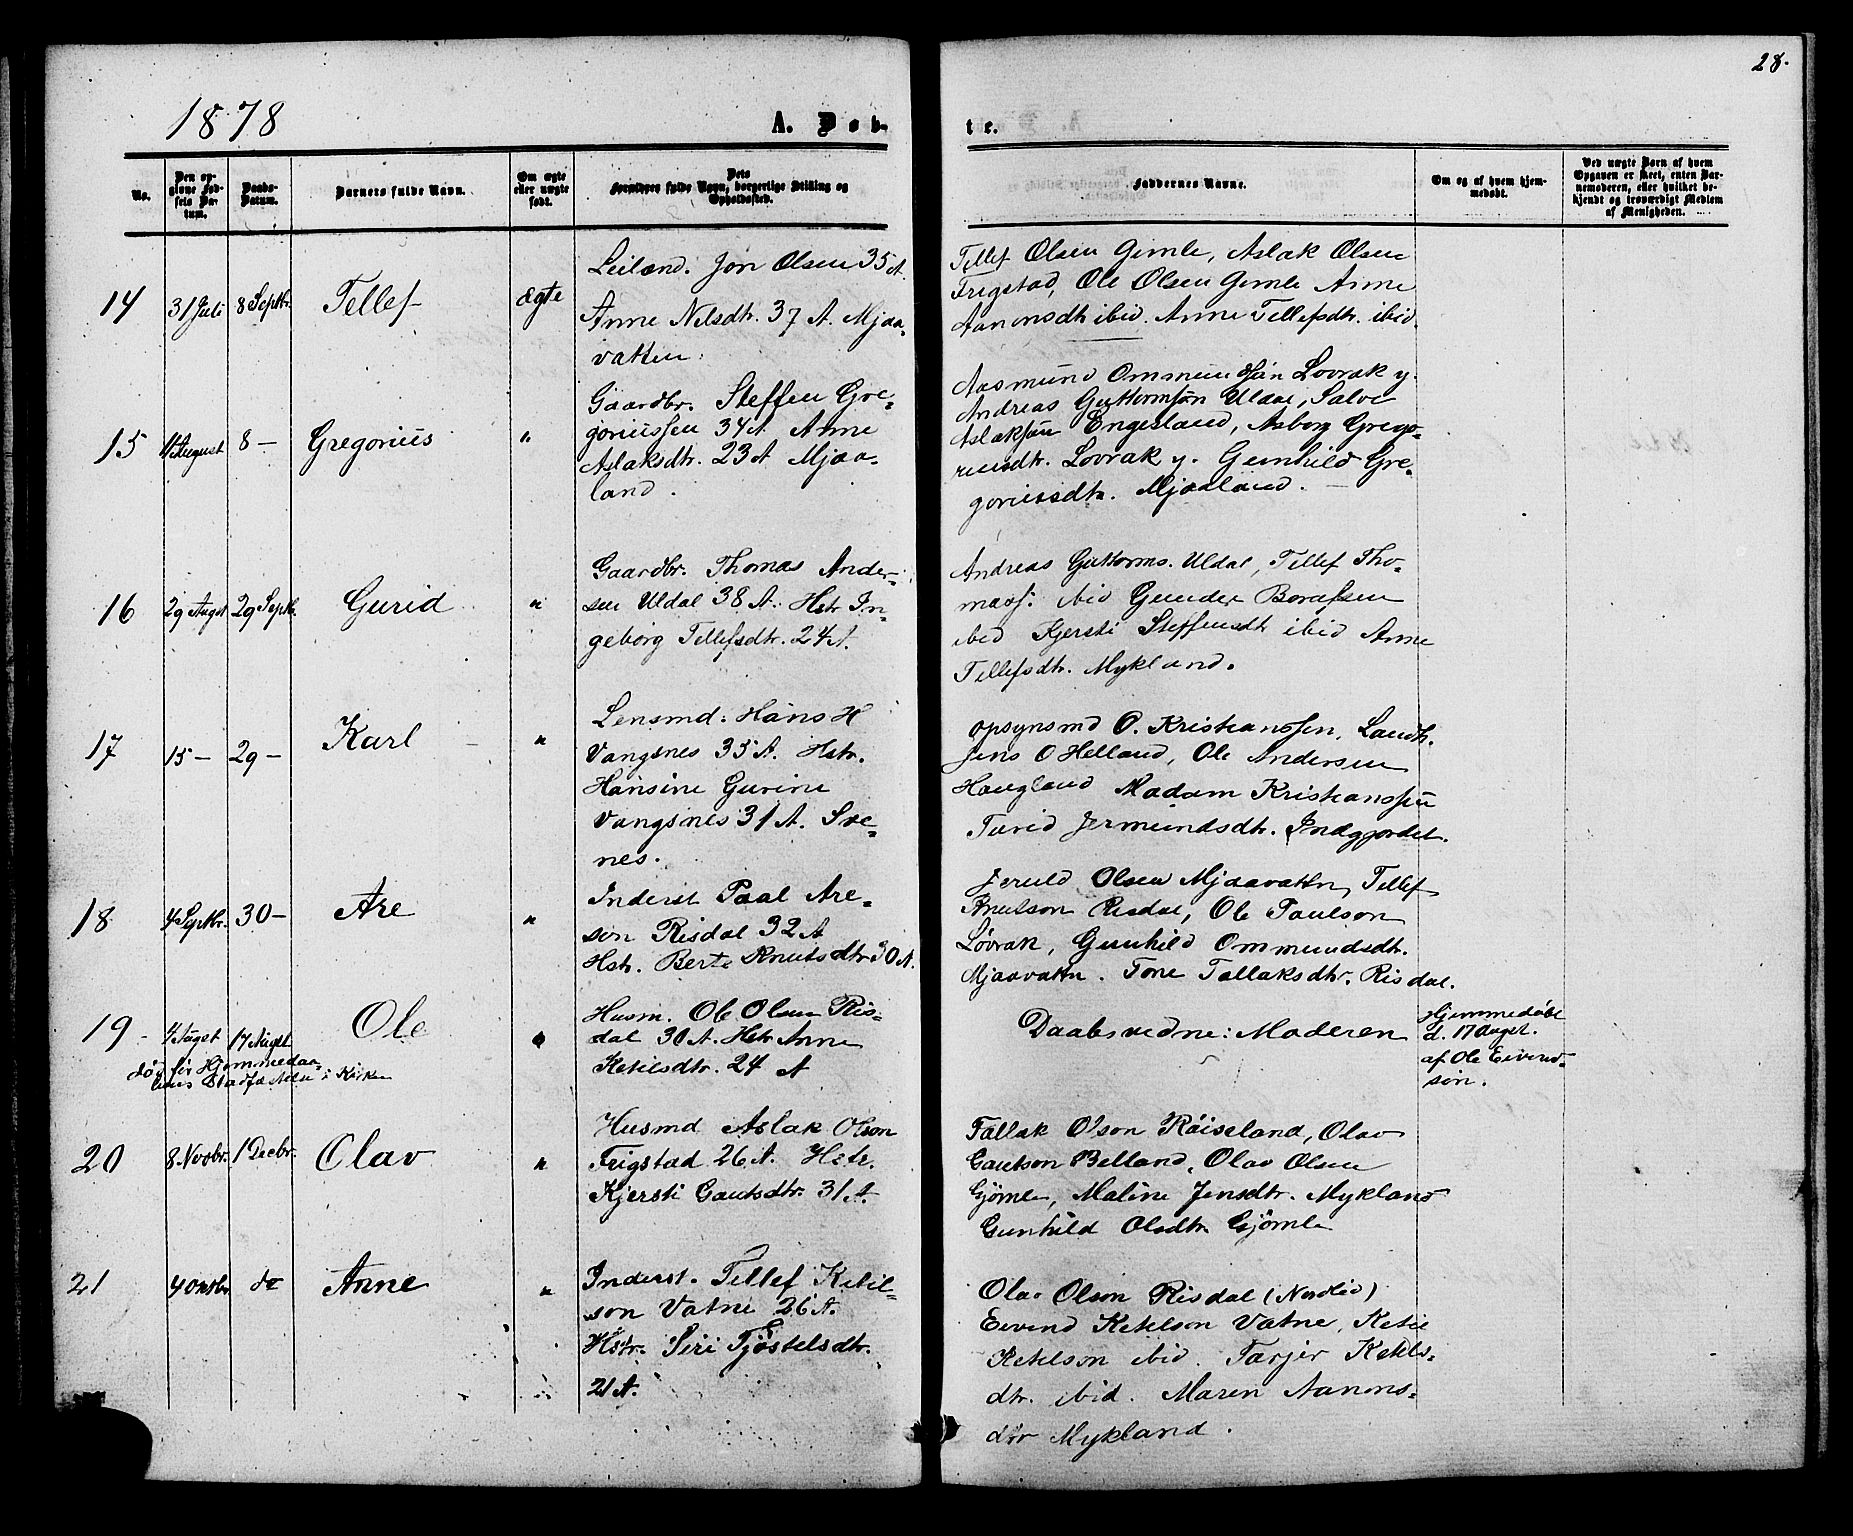 28.
1878
A. Døb-
te.
No.
Den opgivne Fødsels Datum.
Daabs-Datum.
Barnets fulde Navn.
Om ægte eller uægte født.
Dets Forældres fulde Navn, borgerlige Stilling og Opholdssted.
Faddernes Navne.
Om og af hvem hjemmedøbt.
Ved uægte Børn af hvem Opgaven er skeet, enten Barnemoderen, eller hvilket bekjendt og troværdigt Medlem af Menigheden.
14 31 Juli 8 Septbr. Tellef ægte
Leilænd. Jon Olsen 35 A.
Anne Nelsdtr. 37 A. Mjaa-
vatten.
Tellef Olsen Gimle, Aslak Olsen
Frigstad, Ole Olsen Gimle Anne
Aanonsdtr ibid. Anne Tellefsdtr. ibid.
15 August 8 — Gregorius "
Gaardbr. Steffen Gre-
goriussen 34 A Anne
Aslaksdtr. 23 A Mjaa-
land.
Aasmund Ommundsøn Lovrak y.
Andreas Guttormsøn Uldal, Salve
Aslaksøn Engesland, Asborg Grego-
riusdtr. Lovrak y. Gunhild Gre-
goriussdtr. Mjaaland. —
16 29 Augst 29 Septbr. Gurid "
Gaardbr. Thomas Ander-
sen Uldal 38 A. Hstr In-
geborg Tellefsdtr. 24 A.
Andreas Guttorms. Uldal, Tellef Tho-
mass. ibid Gunder
ibid Kjersti Steffensdtr ibid Anne
Tellefsdtr. Mykland.
17 15 — 29 — Karl "
Lensmd: Hans H
Vangsnes 35 A. Hstr.
Hansine Gurine
Vangsnes 31 A. Sve-
nes.
Opsynsmd O. Kristianssen, Landh.
Jens O Helland, Ole Andersen
Haugland Madam Kristianssen
Turid Jermundsdtr. Indgjordet.
18 4 Septbr. 30 — Are "
Inderst Paal Are-
søn Risdal 32 A
Hstr. Berte Knutsdtr 30 A.
Jeruld Olsen Mjaavatn, Tellef
Knutson Risdal, Ole Paulson
Løvrak, Gunhild Ommundsdtr.
Mjaavatn. Tone Tallaksdtr. Risdal.
19 4 Augst 17 Augst Ole "
død før Hjemmedaa-
bens Stadfæstelse i Kirken
Husm. Ole Olsen Ris-
dal 30 A. Hstr Anne
Ketilsdtr. 24 A
Daabsvidne: Moderen
Hjemmedøbt
d. 17 Augst.
af Ole Eivind-
søn.
20 8 Novbr. 1 Decbr. Olav "
Husmd Aslak Olson
Frigstad 26 A. Hstr.
Kjersti Gautsdtr. 31 A.
Tallak Olson Røiseland, Olav
Gautson Belland, Olav Olsen
Gjømle, Maline Jensdtr. Mykland
Gunhild Olsdtr Gjømle
21 4 Oktbr do Anne "
Inderst. Tellef Ketil-
son Vatne 26 A.
Hstr. Siri Tjøstelsdtr.
21 A.
Olav Olson Risdal (Nordlid)
Eivind Ketelson Vatne, Ketil
Ketelson ibid. Tarjer Ketels-
dtr. ibid. Maren Aanons-
dtr Mykland.